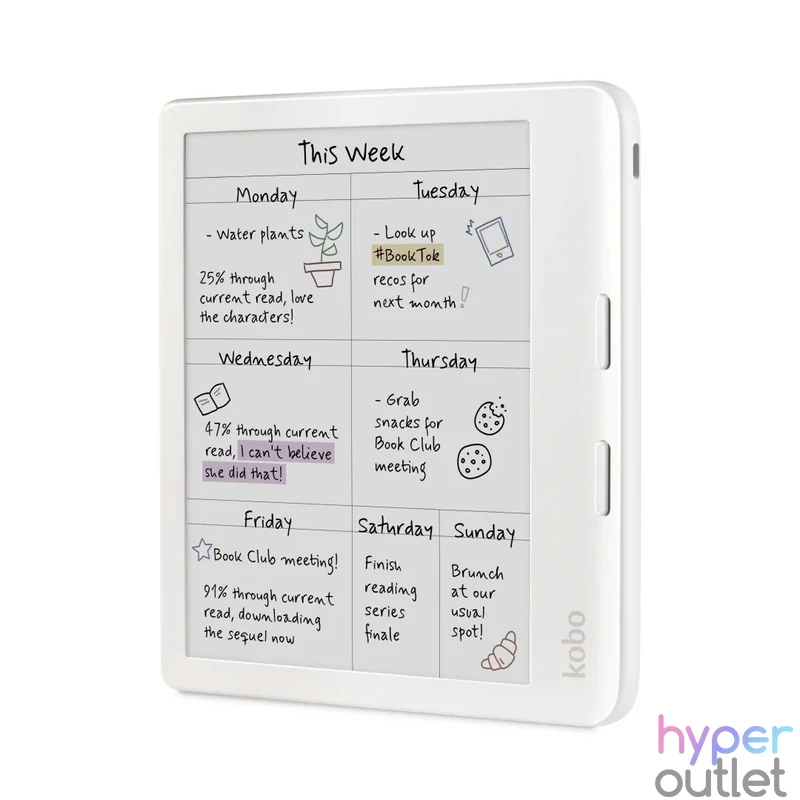 This Week
Monday
- Water plants
25% through
current read, love
the characters!
Tuesday
- Look up
#BookTok
recos for
next month!
Wednesday
47% through current
read, I can't believe
she did that!
Thursday
- Grab
snacks for
Book Club
meeting
Friday
Book Club meeting!
91% through current
read, downloading
the sequel now
Saturday
Finish
reading
series
finale
Sunday
Brunch
at our
usual
spot!
kobo
hyper
outlet